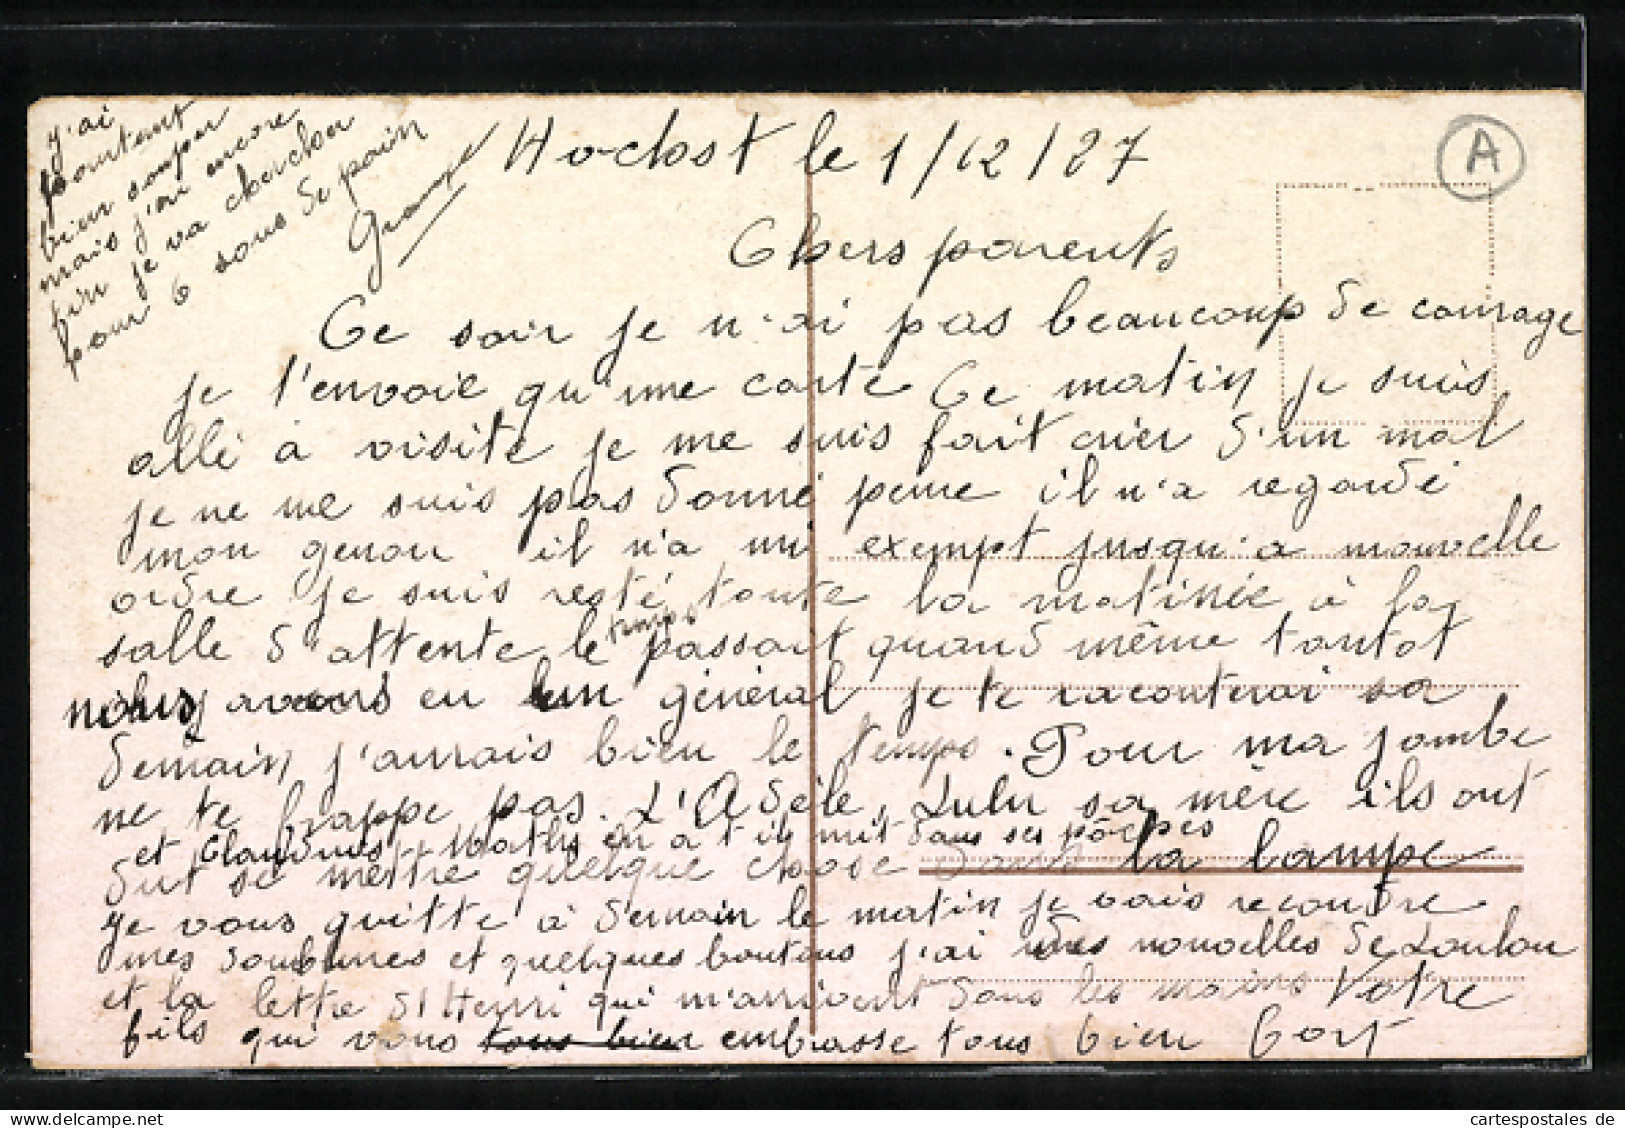 j'ai
pourtant
bien souper
mais j'ai encore
fin je va chercher
pour 6 sous de pain
Hochst le 1/12/27
Chers parents
Ce soir je n'ai pas beaucoup de courage
je t'envoie qu'une carte Ce matin je suis
allé à visite je me suis fait crier d'un mal
je ne me suis pas donné peine il n'a regardé
mon genou il n'a mi exempt jusqu'a nouvelle
ordre je suis resté toute la matinée à la
salle d'attente le temps passait quand même tantot
nous avons eu un général je te raconterai sa
demain j'aurais bien le temps. Pour ma jambe
ne te frappe pas. L'Adèle, Lulu sa mère ils ont
et Claudius Mathis en a t il mit dans ses pôches
dut se mettre quelque chose dans la lampe
Je vous quitte à demain le matin je vais recoudre
mes et quelques boutons j'ai des nouvelles de Loulou
et la lettre d'Henri qui m'arrivent dans les mains Votre
fils qui vous tous bien embrasse tous bien fort
A
cartespostales de